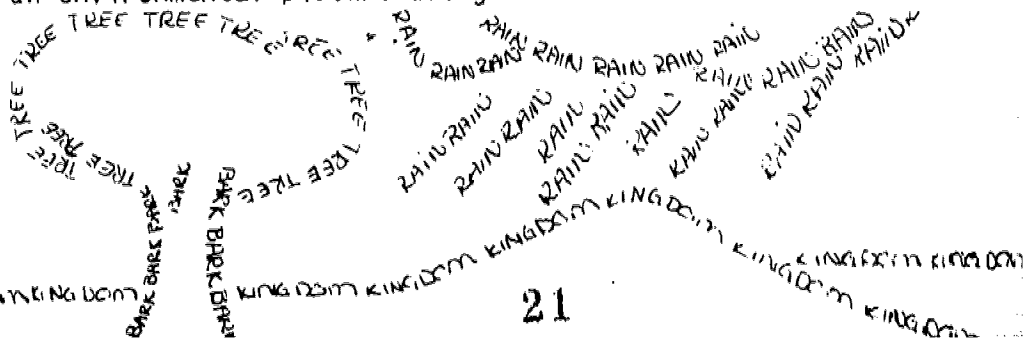 TREE TREE TREE TREE TREE TREE TREE TREE TREE TREE TREE
TREE TREE TREE TREE
BARK BARK BARK
BARK
BARK BARK BARK
RAIN RAIN RAIN RAIN RAIN RAIN
RAIN RAIN
RAIN RAIN RAIN
RAIN RAIN RAIN
RAIN RAIN
RAIN RAIN
RAIN
RAIN RAIN
RAIN
RAIN RAIN
KINGDOM
KINGDOM KINGDOM KINGDOM KINGDOM KINGDOM KINGDOM KINGDOM KINGDOM
KINGDOM KINGDOM
21